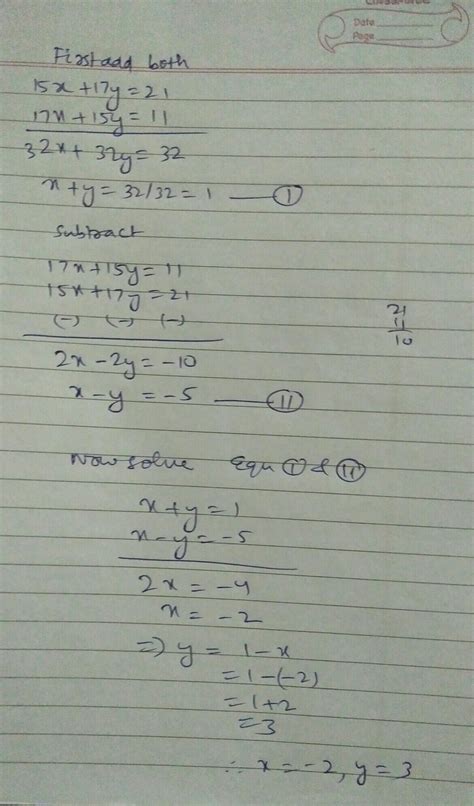 Date
Page
First add both
15x + 17y = 21
17x + 15y = 11
32x + 32y = 32
x + y = 32/32 = 1 — (I)
Subtract
17x + 15y = 11
15x + 17y = 21
(-) (-) (-)
2x - 2y = -10
x - y = -5 — (II)
21
11
10
Now solve Equ (I) & (II)
x + y = 1
x - y = -5
2x = -4
x = -2
=) y = 1 - x
= 1 - (-2)
= 1 + 2
= 3
∴ x = -2, y = 3